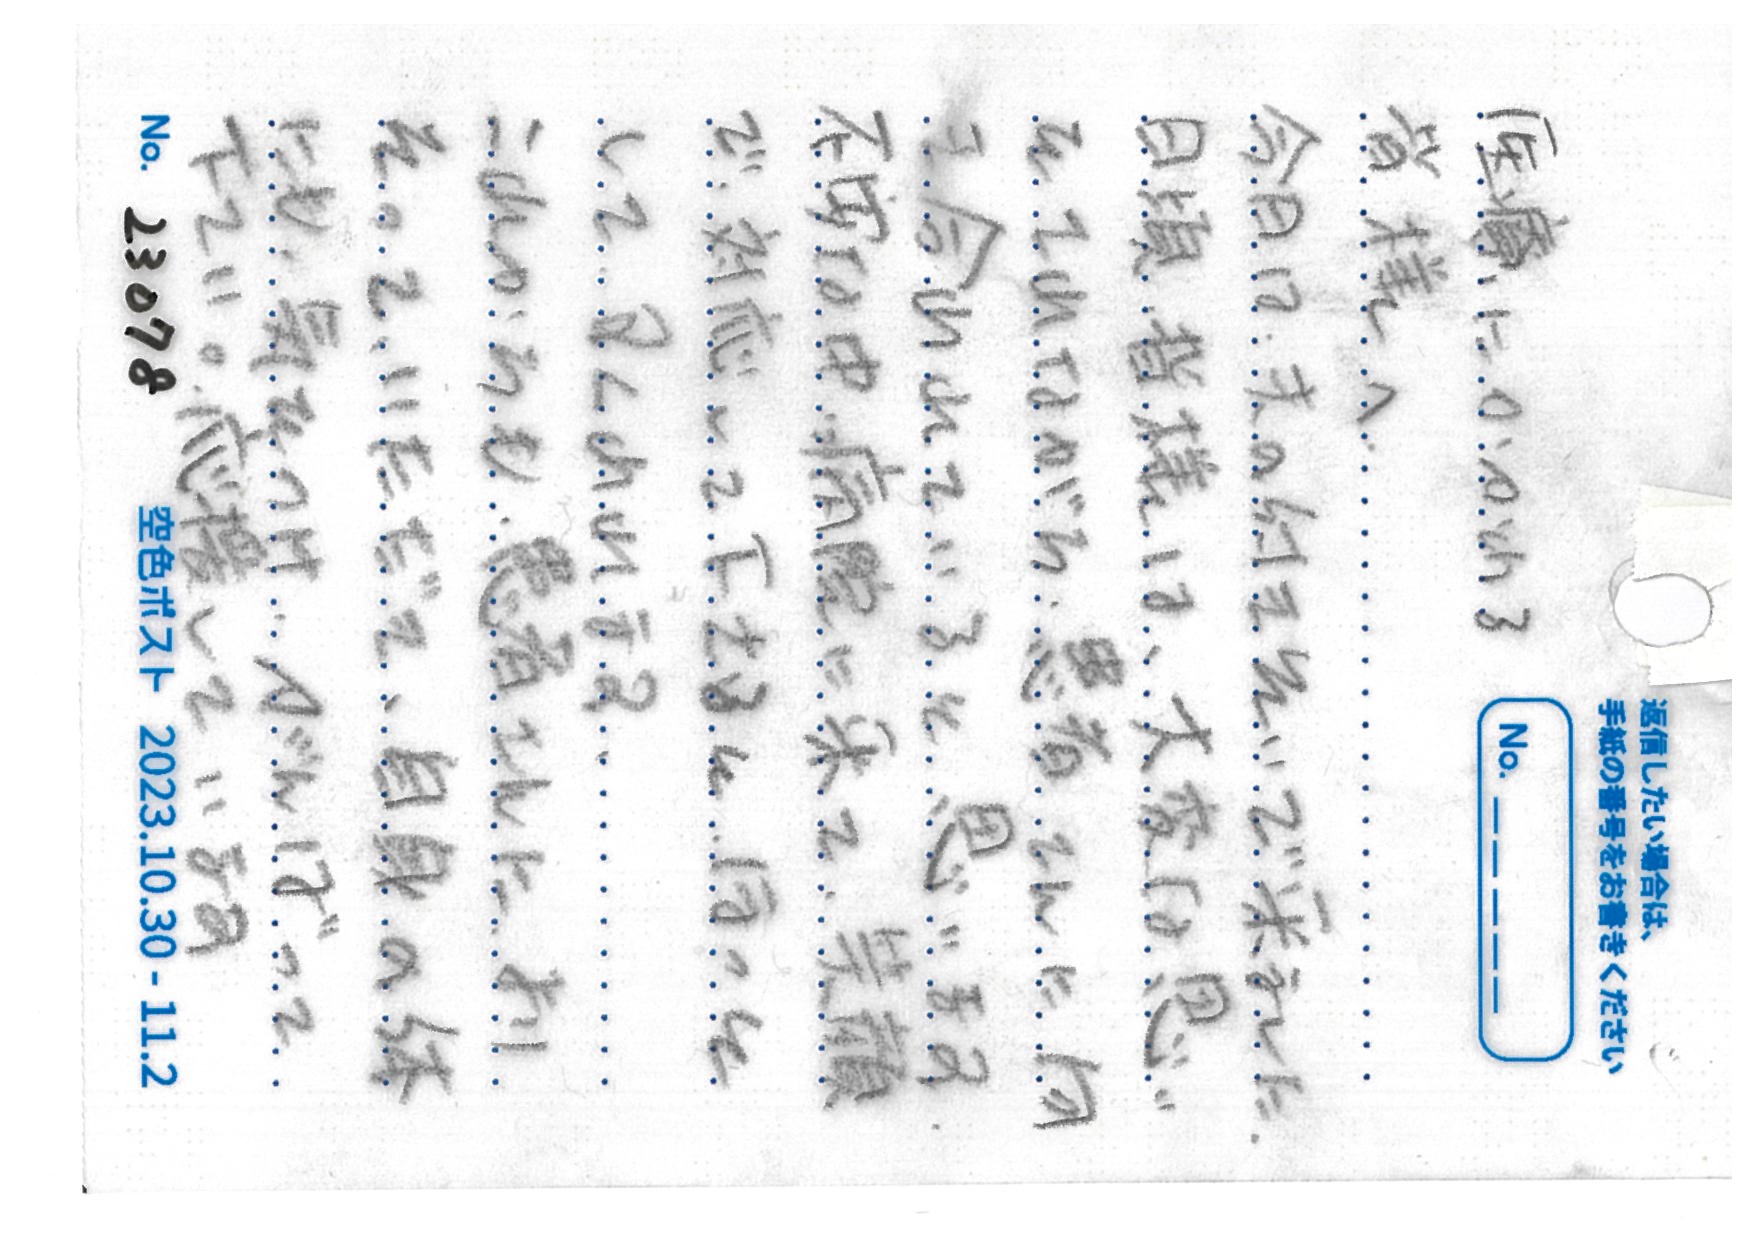 返信したい場合は、
手紙の番号をお書きください
No. _ _ _ _ _
医療にかかわる
皆様へ
今日は、夫の付きそいで来ました.
日頃皆様は、大変な思い
をされながら、患者さんに向
き合われていると思います.
不安な中、病院に来て、笑顔
で、対応して下さると、ほっと
して
これからも、患者さんに、より
そっていただだて、自身の体
にも、気をつけ、がんばって
下さい。応援しています
No. 23078
空色ポスト 2023.10.30 - 11.2